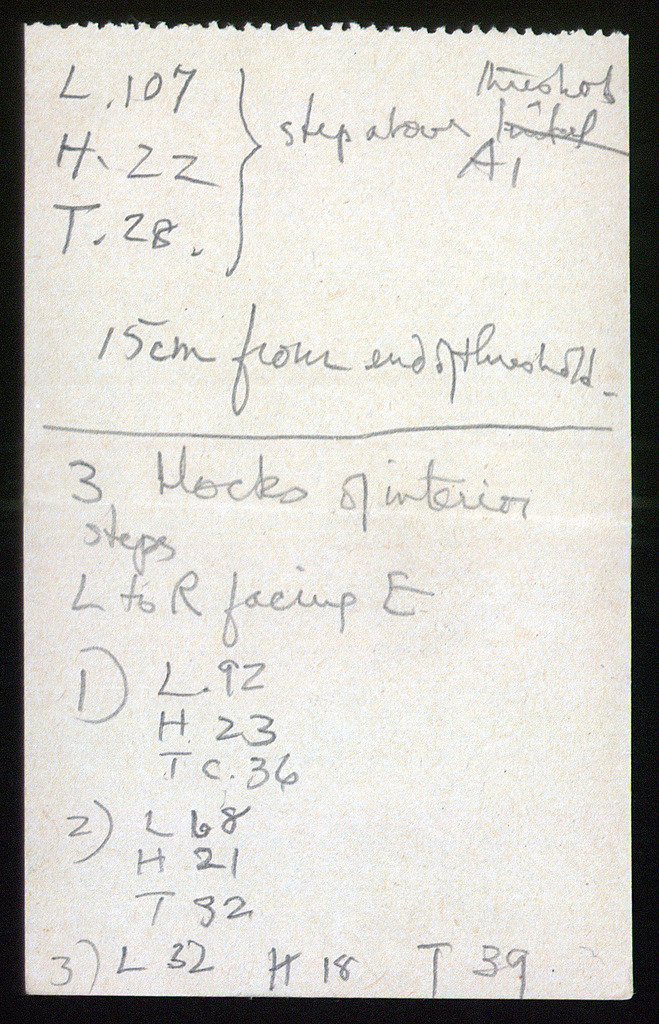 L. 107
H. 22
T. 28.
step above threshold
A1
15cm from end of threshold.
3 blocks of interior
steps
L to R facing E
1) L. 92
H 23
T c. 36
2) L 68
H 21
T 32
3) L 32 H 18 T 39